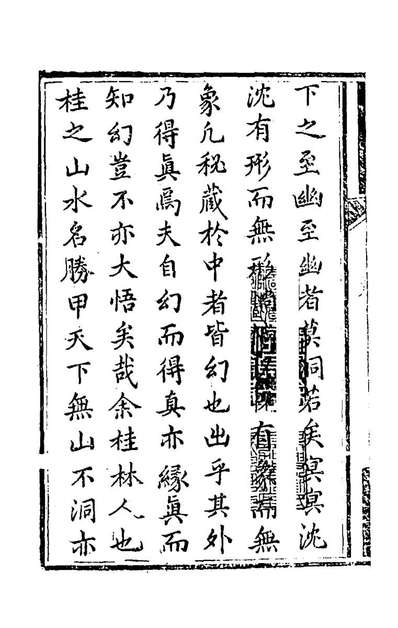 下之至幽至幽者莫洞若矣冥冥沈
沈有形而無形有象而無
象凡秘藏於中者皆幻也出乎其外
乃得眞焉夫自幻而得真亦緣眞而
知幻豈不亦大悟矣哉余桂林人也
桂之山水名勝甲天下無山不洞亦